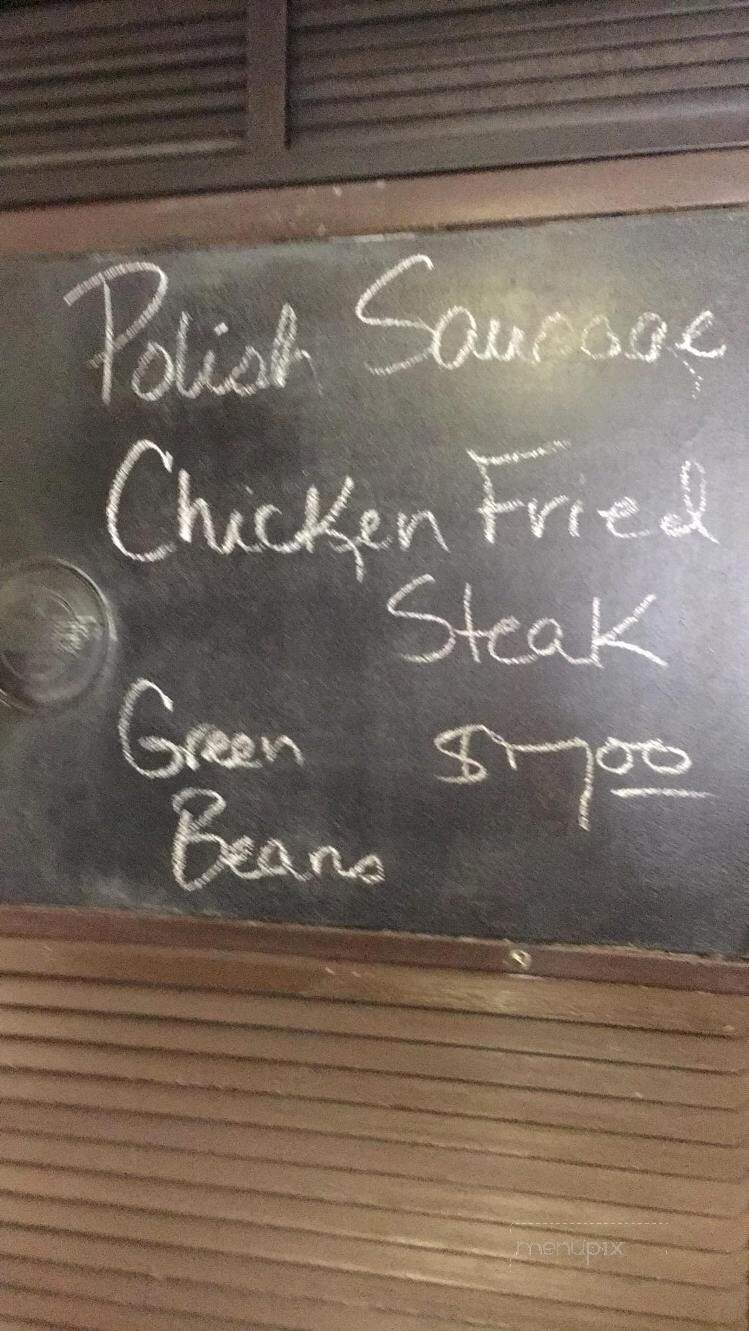 Polish Sausage
Chicken Fried
Steak
Green $7.00
Beans
menupix